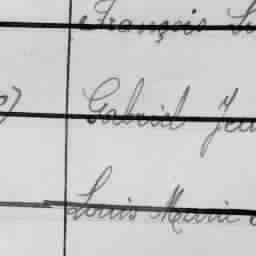 François
Gabriel Jea
Louis Marie